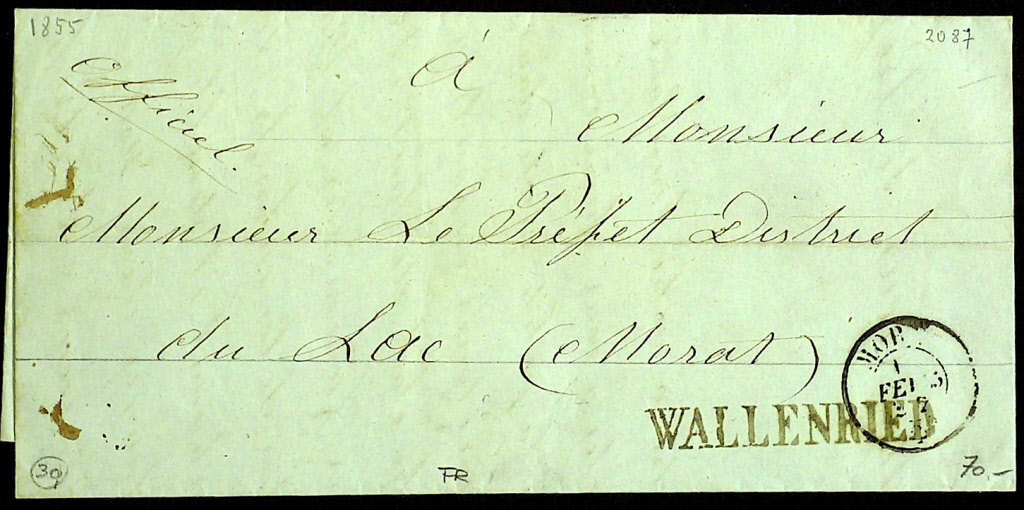 1855
2087
Officiel
à
Monsieur
Monsieur Le Préfet District
du Lac (Morat)
MOR
FEV
WALLENRIED
30
FR
70.–